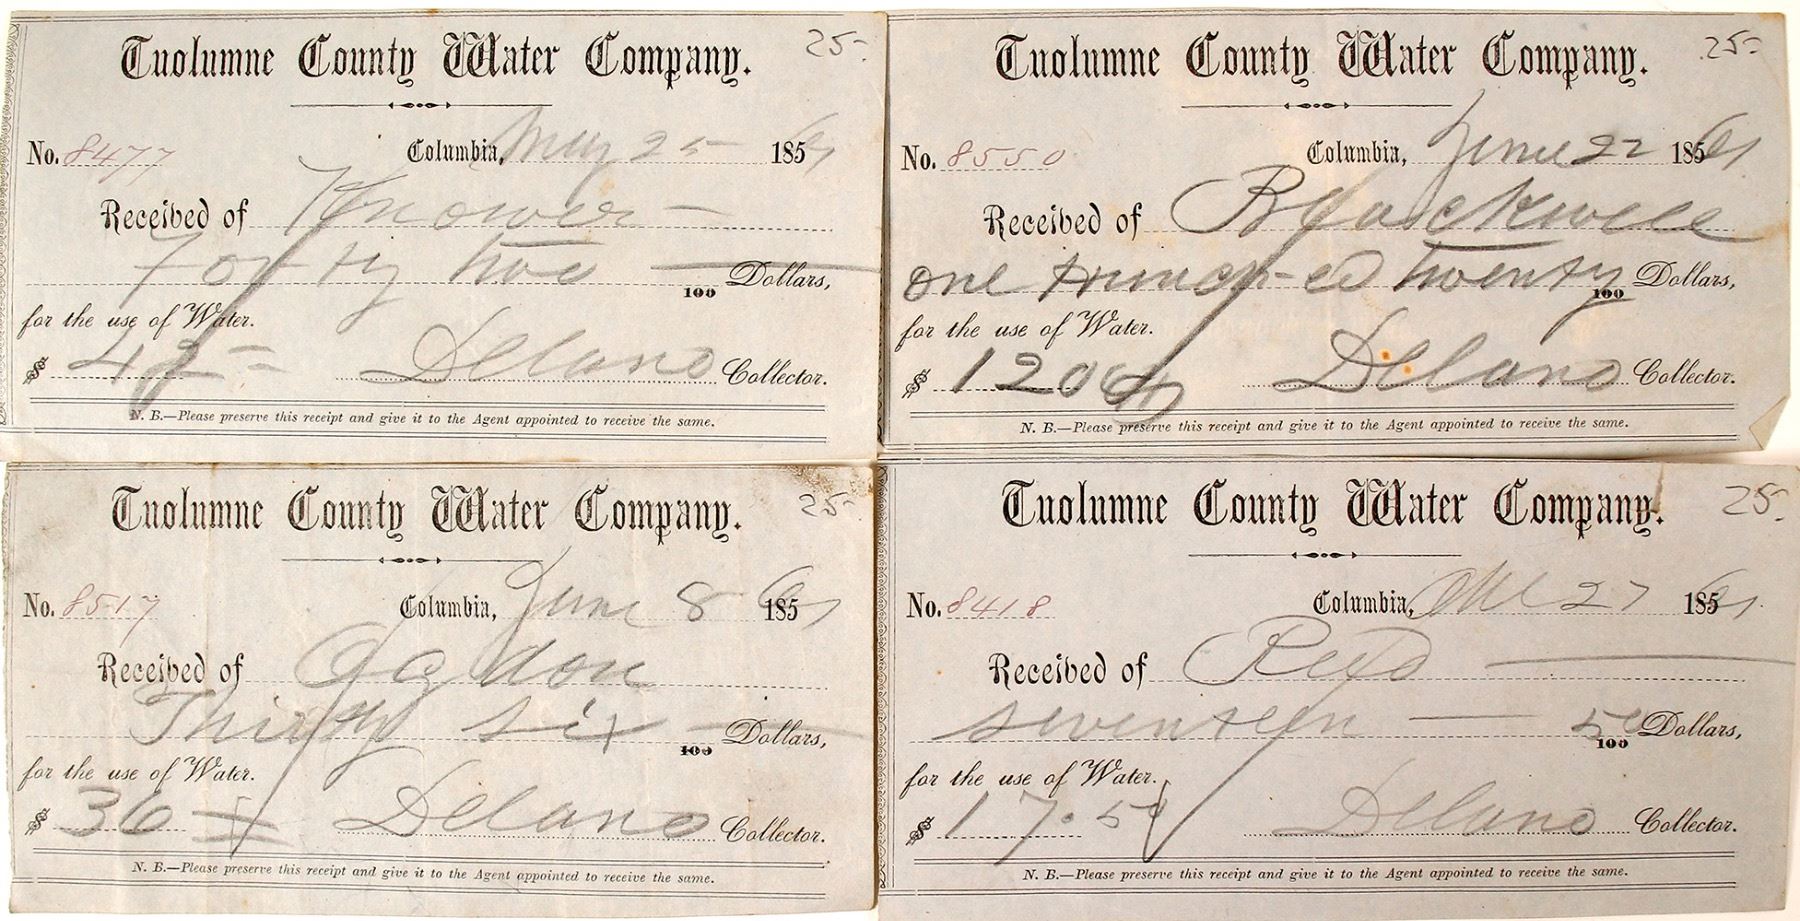 Tuolumne County Water Company. 25-
No. 8477 Columbia, May 25 - 1861
Received of Knower -
Forty two - 100 Dollars,
for the use of Water.
$ 42 = Delano Collector.
N. B.—Please preserve this receipt and give it to the Agent appointed to receive the same.
Tuolumne County Water Company. 25-
No. 8550 Columbia, June 22 1861
Received of Blackwell
one hundred twenty 100 Dollars,
for the use of Water.
$ 120 Delano Collector.
N. B.—Please preserve this receipt and give it to the Agent appointed to receive the same.
Tuolumne County Water Company. 25-
No. 8517 Columbia, June 8 1861
Received of Ogdon
Thirty six - 100 Dollars,
for the use of Water.
$ 36 Delano Collector.
N. B.—Please preserve this receipt and give it to the Agent appointed to receive the same.
Tuolumne County Water Company. 25-
No. 8418 Columbia, 27 1861
Received of Reed
seventeen — 50 100 Dollars,
for the use of Water.
$ 17.50 Delano Collector.
N. B.—Please preserve this receipt and give it to the Agent appointed to receive the same.